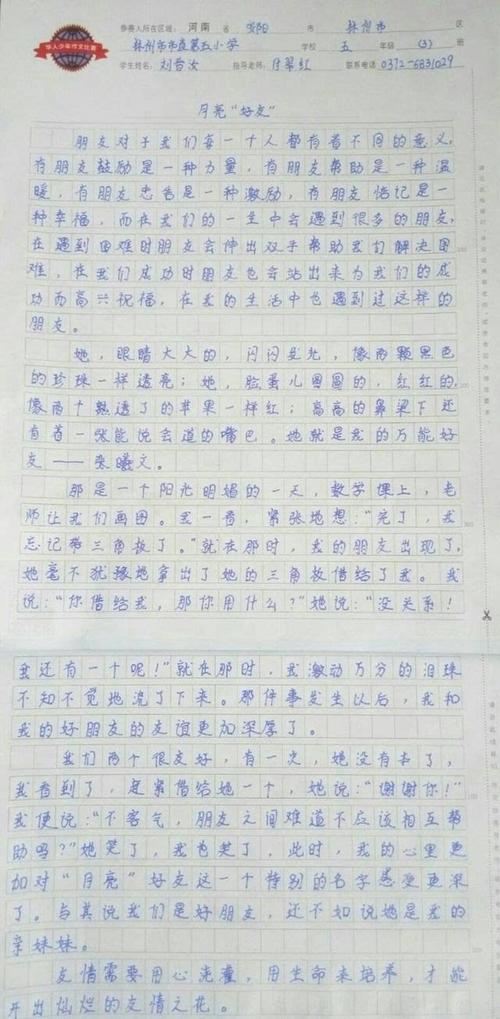 华人少年作文比赛
参赛人所在区域: 河南 省 安阳 市 林州市 区
林州市市直第五小学 学校 五 年级 (3) 班
学生姓名: 刘 汝 指导老师: 付翠红 联系电话 0372-6831029
月亮“好友”
朋友对于我们每一个人都有着不同的意义,
有朋友鼓励是一种力量,有朋友帮助是一种温
暖,有朋友忠告是一种激励,有朋友惦记是一
种幸福,而在我们的一生中会遇到很多的朋友,
在遇到困难时朋友会伸出双手帮助我们解决困
难,在我们成功时朋友也会站出来为我们的成
功而高兴祝福,在我的生活中也遇到过这样的
朋友。
她,眼睛大大的,闪闪发光,像两颗黑色
的珍珠一样透亮;她,脸蛋儿圆圆的,红红的,
像两个熟透了的苹果一样红;高高的鼻梁下还
有着一张能说会道的嘴巴。她就是我的万能好
友——栾曦文。
那是一个阳光明媚的一天,数学课上,老
师让我们画图。我一看,紧张地想:“完了,我
忘记带三角板了。”就在那时,我的朋友出现了,
她毫不犹豫地拿出了她的三角板借给了我。我
说:“你借给我,那你用什么?”她说:“没关系!
我还有一个呢!”就在那时,我激动万分的泪珠
不知不觉地流了下来。那件事发生以后,我和
我的好朋友的友谊更加深厚了。
我们两个很友好,有一次,她没有本了,
我看到了,赶紧借给她一个,她说:“谢谢你!”
我便说:“不客气,朋友之间难道不应该相互帮
助吗?”她笑了,我也笑了,此时,我的心里更
加对“月亮”好友这一个特别的名字感受更深
了。与其说我们是好朋友,还不如说她是我的
亲妹妹。
友情需要用心浇灌,用生命来培养,才能
开出灿烂的友情之花。